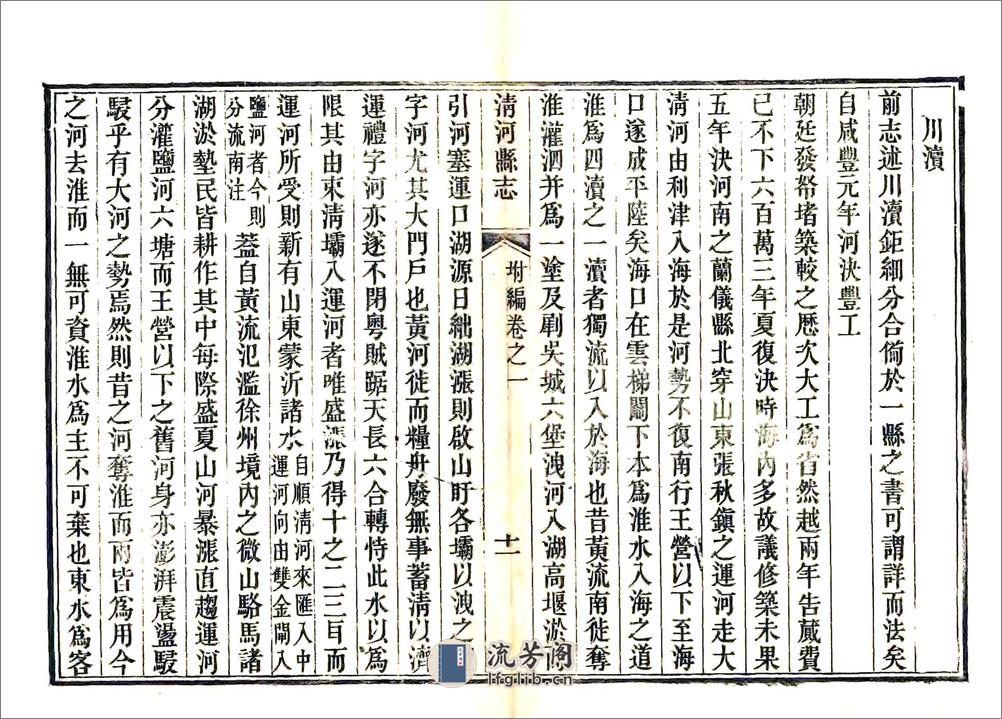 川瀆
前志述川瀆鉅細分合倚於一縣之書可謂詳而法矣
自咸豐元年河決豐工
朝廷發帑堵築較之歷次大工爲省然越兩年告蕆費
已不下六百萬三年夏復決時海內多故議修築未果
五年決河南之蘭儀縣北穿山東張秋鎮之運河走大
清河由利津入海於是河勢不復南行王營以下至海
口遂成平陸矣海口在雲梯關下本爲淮水入海之道
淮爲四瀆之一瀆者獨流以入於海也昔黃流南徙奪
淮灌泗并爲一塗及剛吳城六堡洩河入湖高堰淤
清河縣志
坿編卷之一
十一
引河塞運口湖源日絀湖漲則啟山盱各壩以洩之
字河尤其大門戶也黃河徙而糧舟廢無事蓄清以濟
運禮字河亦遂不閉粵賊踞天長六合轉恃此水以爲
限其由束清壩入運河者唯盛漲乃得十之二三耳而
運河所受則新有山東蒙沂諸水自順清河來匯入中運河向由雙金閘入
鹽河者今則分流南注葢自黃流氾濫徐州境內之微山駱馬諸
湖淤墊民皆耕作其中每際盛夏山河暴漲直趨運河
分灌鹽河六塘而王營以下之舊河身亦澎湃震盪駸
駸乎有大河之勢焉然則昔之河奪淮而兩皆爲用今
之河去淮而一無可資淮水爲主不可棄也東水爲客
流芳阁
lfglib.cn